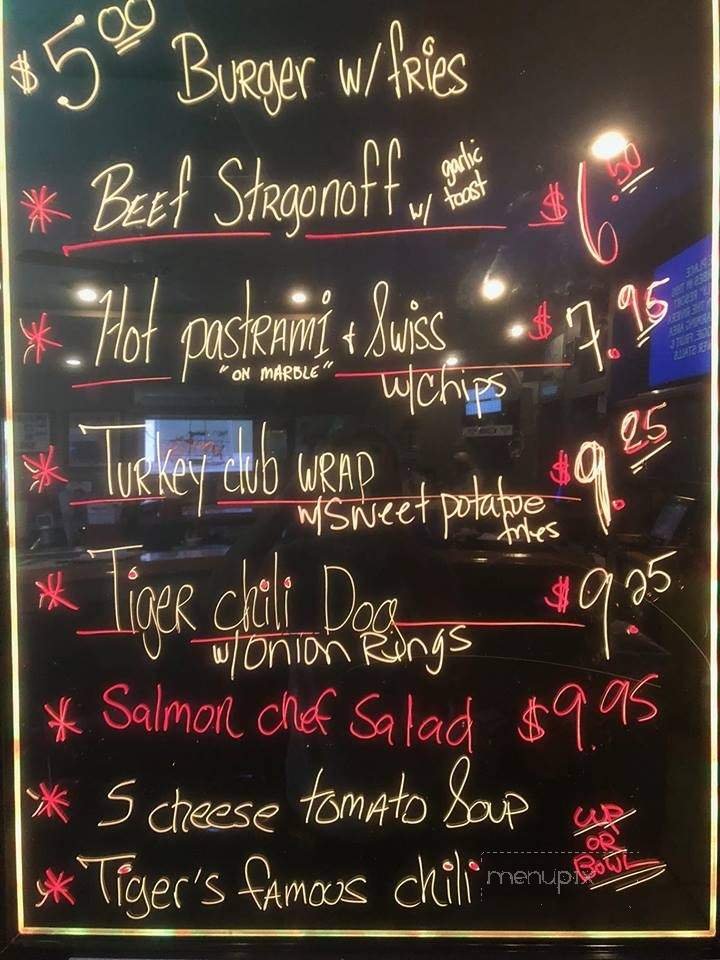 $5.00 Burger w/ fries
* Beef Strgonoff w/ garlic toast $6.50
* Hot pastrami & Swiss $7.95
"on marble" w/chips
* Turkey club wrap $9.25
w/Sweet potatoe fries
* Tiger chili Dog $9.25
w/onion Rings
* Salmon chef Salad $9.95
* 5 cheese tomato Soup
* Tiger's famous chili
cup
or
Bowl
menupix